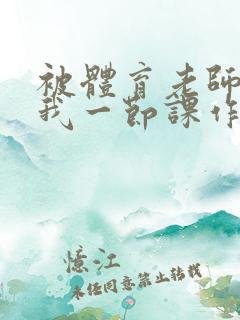 被體育老師
我一節課作
憶江
未经同意禁止转载